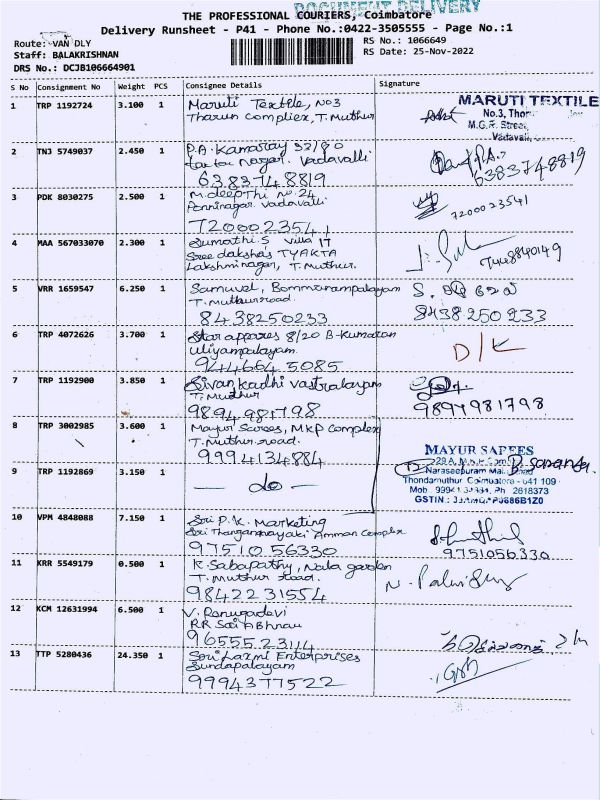 DOCUMENT DELIVERY
THE PROFESSIONAL COURIERS, Coimbatore
Delivery Runsheet - P41 - Phone No.:0422-3505555 - Page No.:1
Route: VAN DLY
Staff: BALAKRISHNAN
DRS No.: DCJB106664901
RS No.: 1066649
RS Date: 25-Nov-2022
S No Consignment No Weight PCS Consignee Details Signature
1 TRP 1192724 3.100 1 Maruti Textile, No3
Tharun Compliex, T. Muthur
MARUTI TEXTILE
No.3,
M.G.R. Street,
Vadavalli,
2 TNJ 5749037 2.450 1 P.A. Kamaraj 32/80
tartar nagar. Vadavalli
6383748819
6383748819
3 PDK 8030275 2.500 1 M. deepThi No 24
Ponninagar. Vadavalli
7200023541
7200023541
4 MAA 567033070 2.300 1 Sumathi. S villa 17
Sree dakshas TYAKTA
Lakshminagar, T. Muthur.
7448840149
5 VRR 1659547 6.250 1 Samuvel, Bommanampalayam
T. Muthur road.
8438250233
8438250233
6 TRP 4072626 3.700 1 Star appares 8/20 B-Kumaran
Uliyampalayam.
944664 5085
D/K
7 TRP 1192900 3.850 1 Sivan kadhi Vastralayam
T. Muthur
9894981798
9894981798
8 TRP 3002985 3.600 1 Mayur Sarees, MKP Complex
T. Muthur. road.
9994134884
MAYUR SAREES
Naraseepuram
Thondamuthur Coimbatore - 641 109
Ph 2618373
9 TRP 1192869 3.150 1 — do —
10 VPM 4848088 7.150 1 Sri P.K. Marketing
Sri Thanganarayaki Amman Complex
97510 56330
9751056330
11 KRR 5549179 0.500 1 K. Sabapathy, Nala garden
T. Muthur road.
9842231554
12 KCM 12631994 6.500 1 V. Renugadevi
RR Sai Abhnav
9655523114
13 TTP 5280436 24.350 1 Sri Laxmi Enterprises
Sundapalayam
9994377522